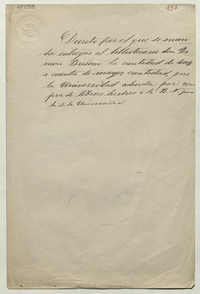 157
Decreto por el que se man-
da entregar al bibliotecario don Ra-
mon Briseño la cantidad de
a cuenta de mayor cantidad, que
la Universidad adeuda por com-
pra de libros hechos a la B. N. por
la Universidad